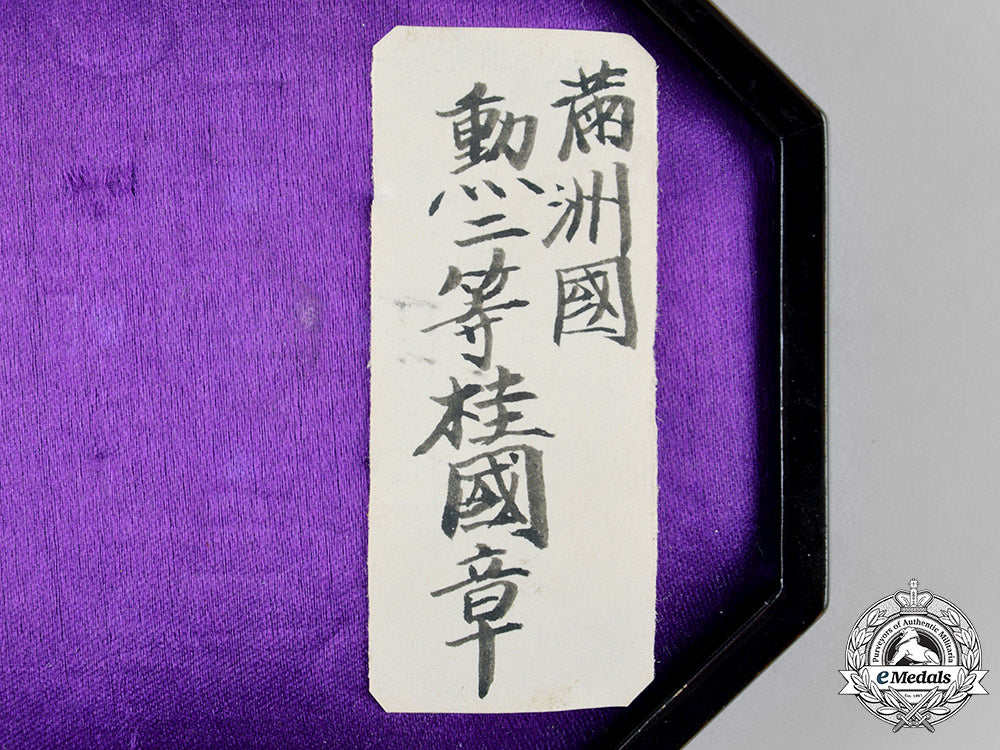 満洲國
勲二等桂國章
Purveyors of Authentic Militaria
eMedals
Est. 1967